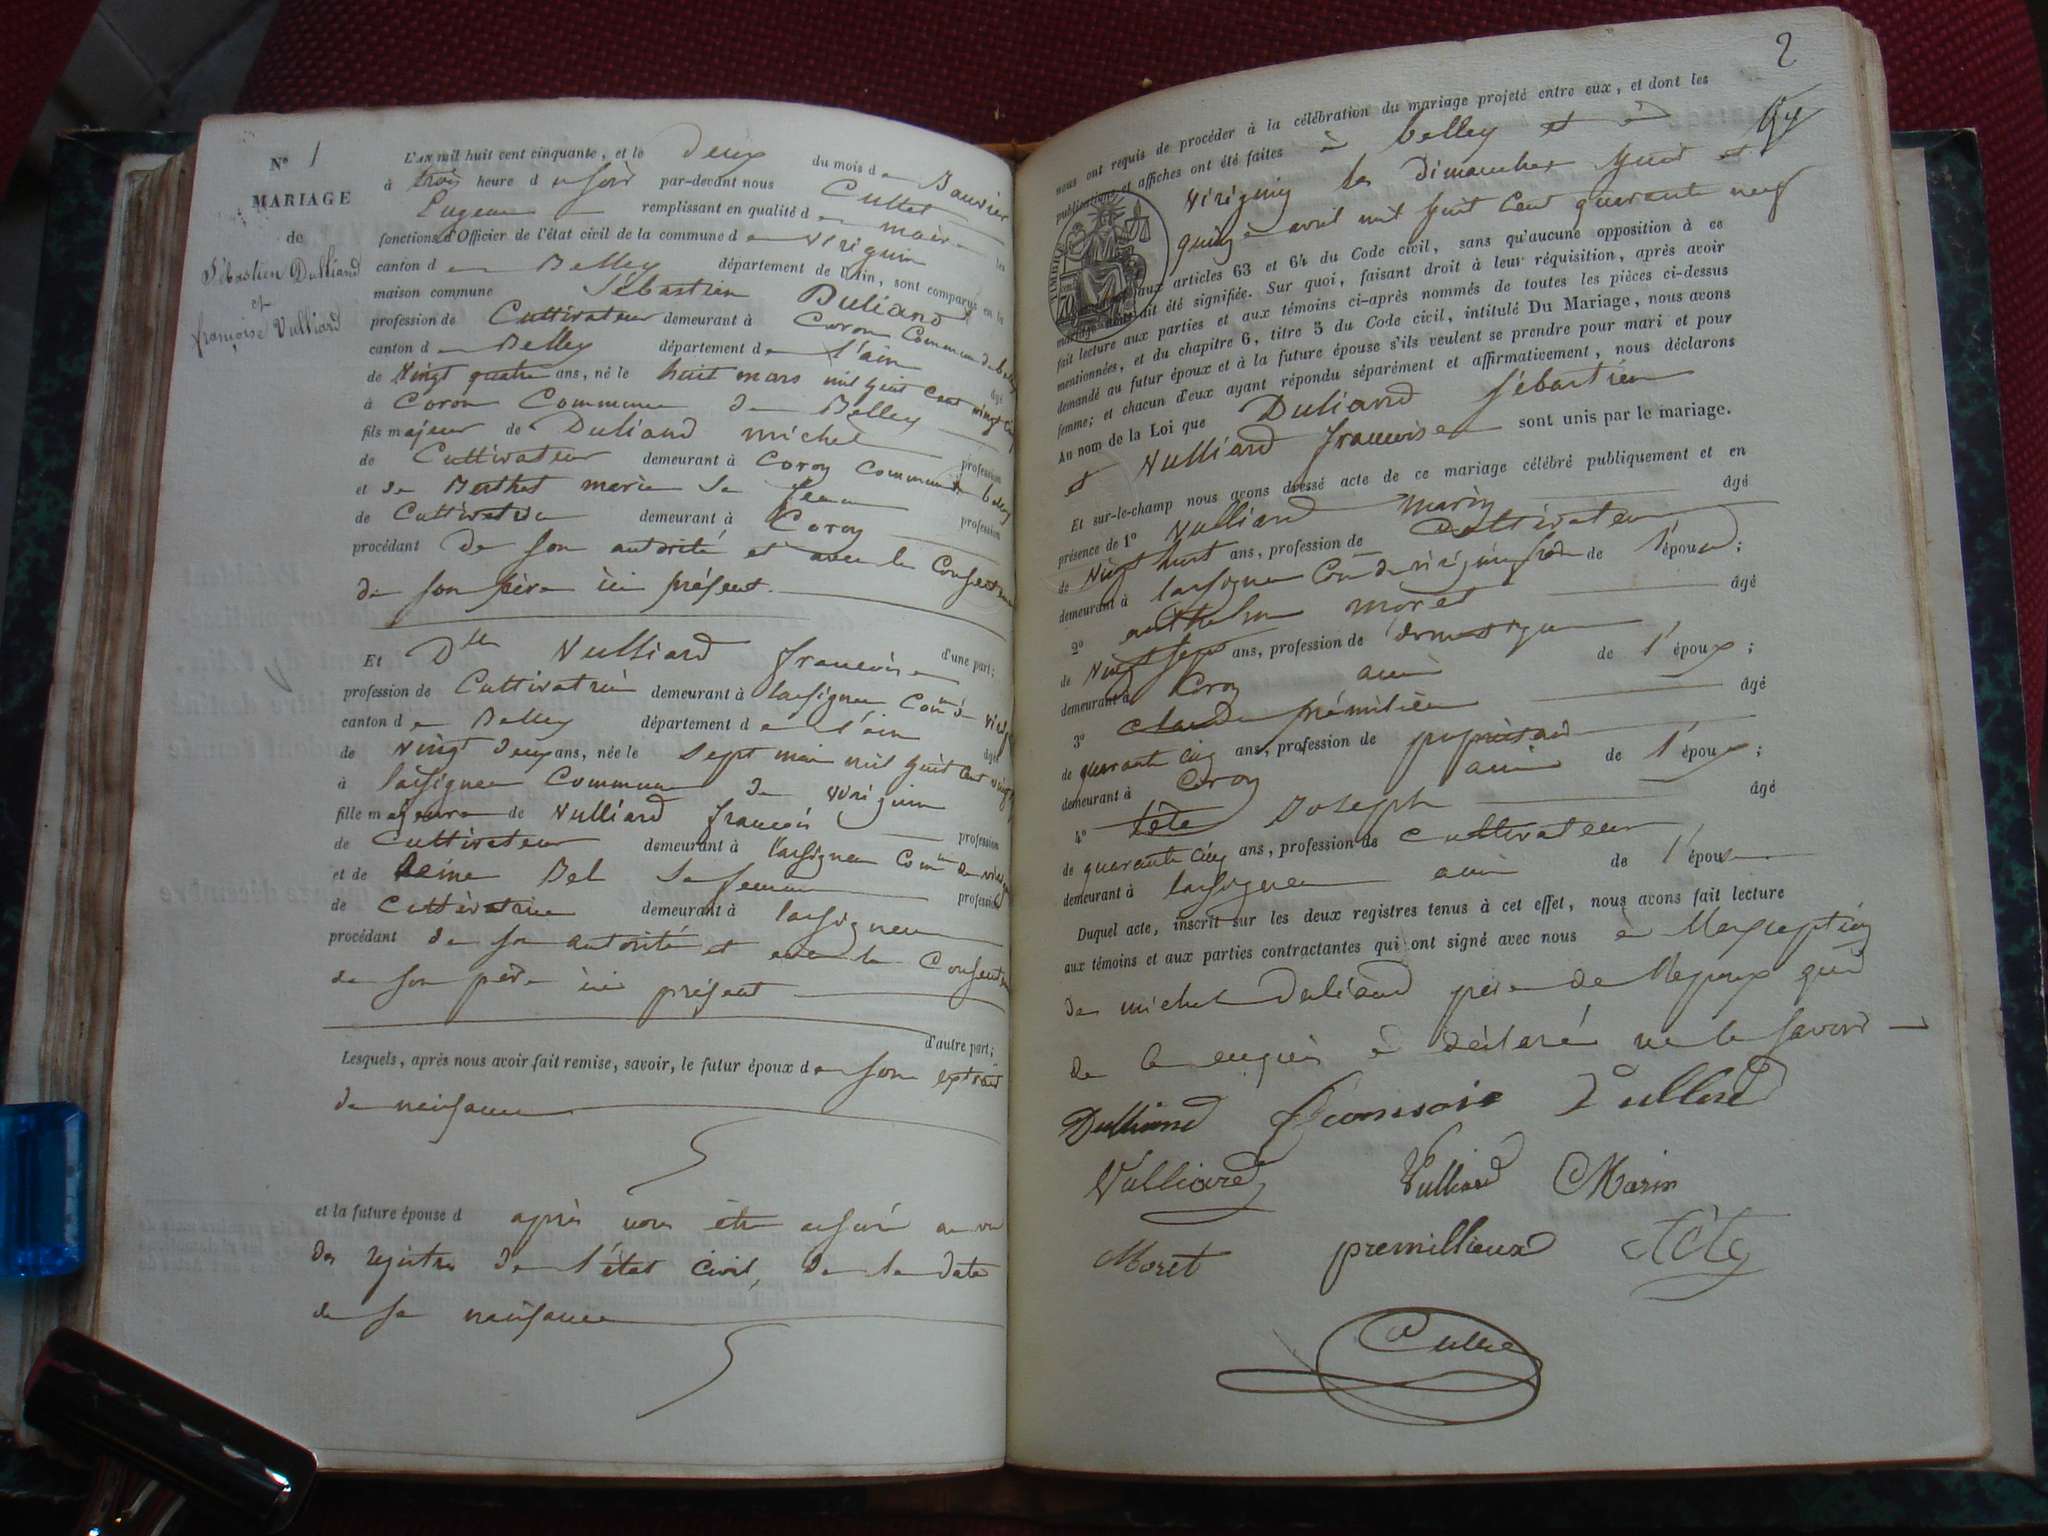 N° 1
MARIAGE
de
Sébastien Dulliand
et
françoise Vulliard
L'AN mil huit cent cinquante, et le deux du mois de Janvier
à trois heure du soir par-devant nous Cullet
Eugene remplissant en qualité de maire les
fonctions d'Officier de l'état civil de la commune de virignin
canton de Belley département de l'Ain, sont comparus en la
maison commune Sébastien Duliand
profession de Cultivateur demeurant à Coron Commune de belley
canton de Belley département de l'ain âgé
de vingt quatre ans, né le huit mars mil huit cent vingt cinq
à Coron Commune de Belley
fils majeur de Duliand michel profession
de Cultivateur demeurant à Coron Commune de belley
et de Berthet marie sa femme profession
de Cultivatrice demeurant à Coron
procédant de son autorité et avec le Consentement
de son père ici présent.
d'une part;
Et Dlle Vulliard francoise
profession de Cultivatrice demeurant à lassignieu Comne de virignin
canton de Belley département de l'ain âgée
de vingt deux ans, née le sept mai mil huit cent vingt
à lassignieu Commune de virignin
fille majeure de Vulliard francois profession
de Cultivateur demeurant à lassignieu Comne de virignin
et de Reine Bel sa femme profession
de Cultivatrice demeurant à lassignieu
procédant de son autorité et avec le Consentement
de son père ici présent
d'autre part;
Lesquels, après nous avoir fait remise, savoir, le futur époux de son extrait
de naissance
et la future épouse d après nous être assuré au vu
des registres de l'état civil, de la date
de sa naissance
2
nous ont requis de procéder à la célébration du mariage projeté entre eux, et dont les
publications et affiches ont été faites à belley et à
virignin les dimanches huit et
quinze avril mil huit cent quarante neuf
aux articles 63 et 64 du Code civil, sans qu'aucune opposition à ce
mariage nous ait été signifiée. Sur quoi, faisant droit à leur réquisition, après avoir
fait lecture aux parties et aux témoins ci-après nommés de toutes les pièces ci-dessus
mentionnées, et du chapitre 6, titre 5 du Code civil, intitulé Du Mariage, nous avons
demandé au futur époux et à la future épouse s'ils veulent se prendre pour mari et pour
femme; et chacun d'eux ayant répondu séparément et affirmativement, nous déclarons
Au nom de la Loi que Duliand Sébastien
et Vulliard francoise sont unis par le mariage.
Et sur-le-champ nous avons dressé acte de ce mariage célébré publiquement et en
présence de 1° Vulliard Marin âgé
de Vingt huit ans, profession de Cultivateur
demeurant à lassignieu Cne de virignin frère de l'épouse;
2° anthelme moret âgé
de Vingt sept ans, profession de domestique
demeurant à Coron ami de l'époux;
3° Claude prémilieu âgé
de quarante cinq ans, profession de propriétaire
demeurant à Coron ami de l'époux;
4° tête Joseph âgé
de quarante cinq ans, profession de Cultivateur
demeurant à lassignieu ami de l'épouse
Duquel acte, inscrit sur les deux registres tenus à cet effet, nous avons fait lecture
aux témoins et aux parties contractantes qui ont signé avec nous à l'exception
de michel Duliand père de l'époux qui
de ce enquis à déclaré ne le savoir
Dulliand francoise Vulliard
Vulliard Vulliard Marin
Moret premillieux tête
Cullet